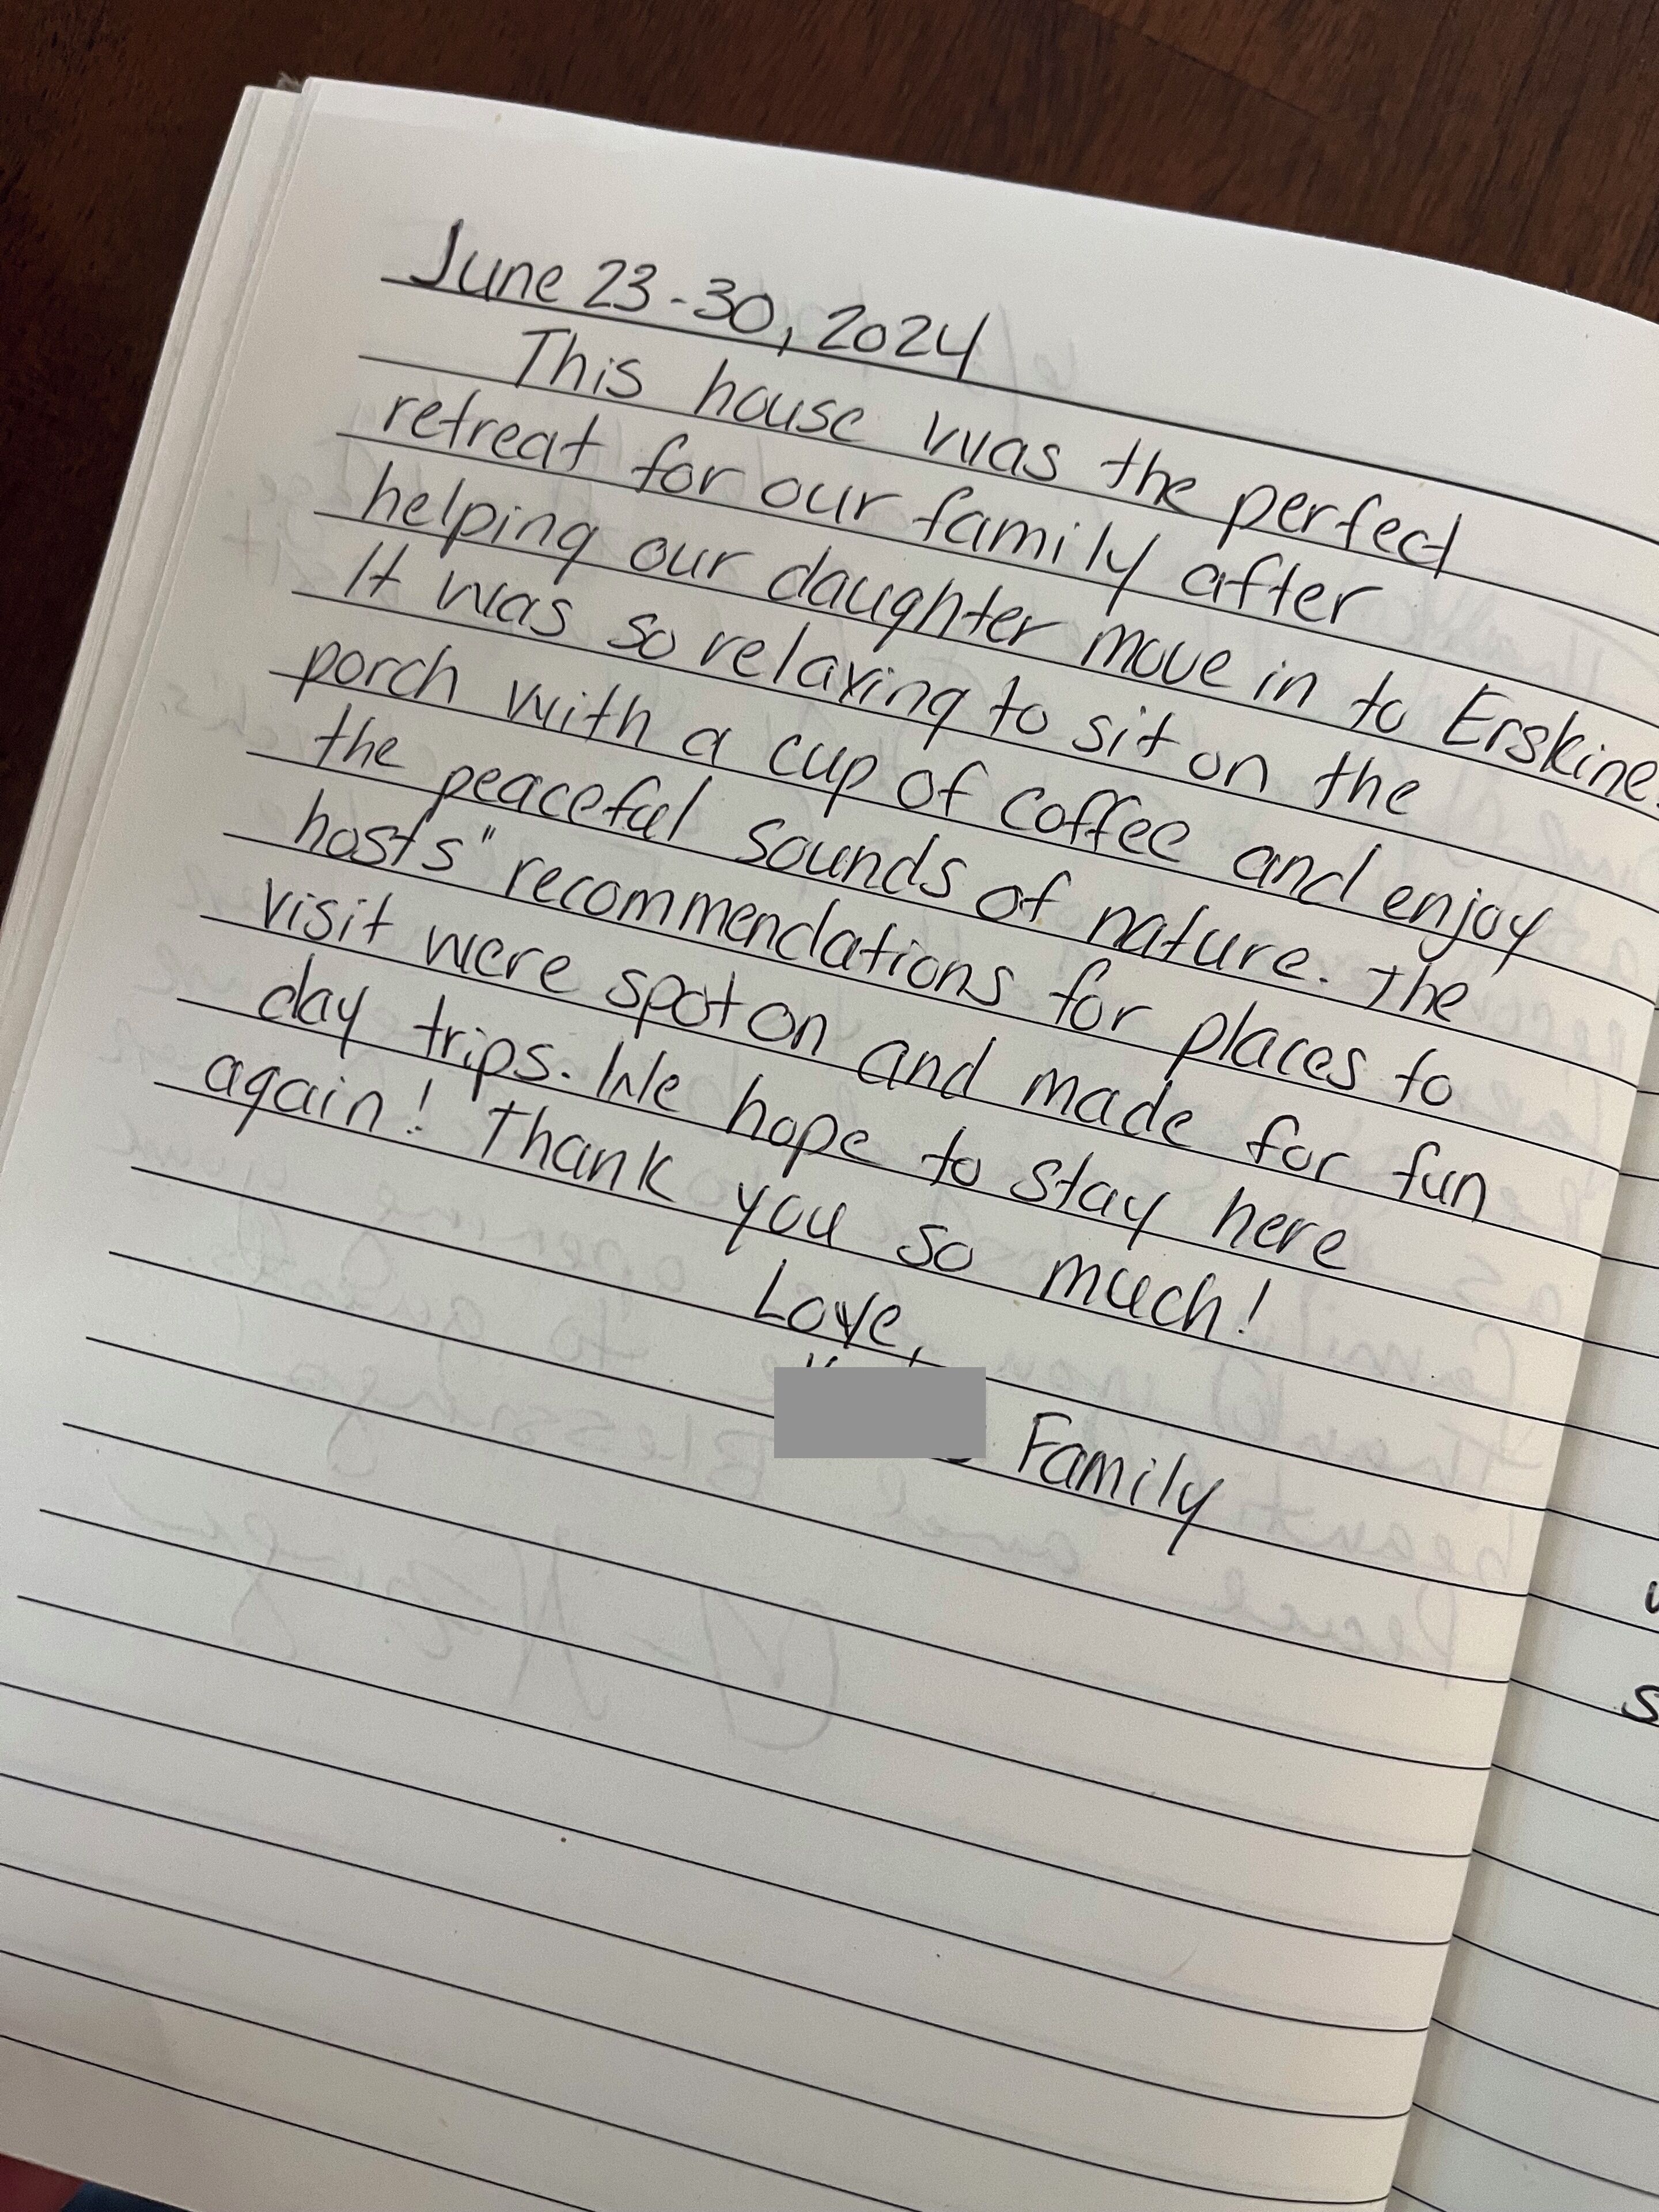 June 23-30, 2024
This house was the perfect
retreat for our family after
helping our daughter move in to Erskine.
It was so relaxing to sit on the
porch with a cup of coffee and enjoy
the peaceful sounds of nature. The
hosts" recommendations for places to
visit were spot on and made for fun
day trips. We hope to stay here
again! Thank you so much!
Love,
Family